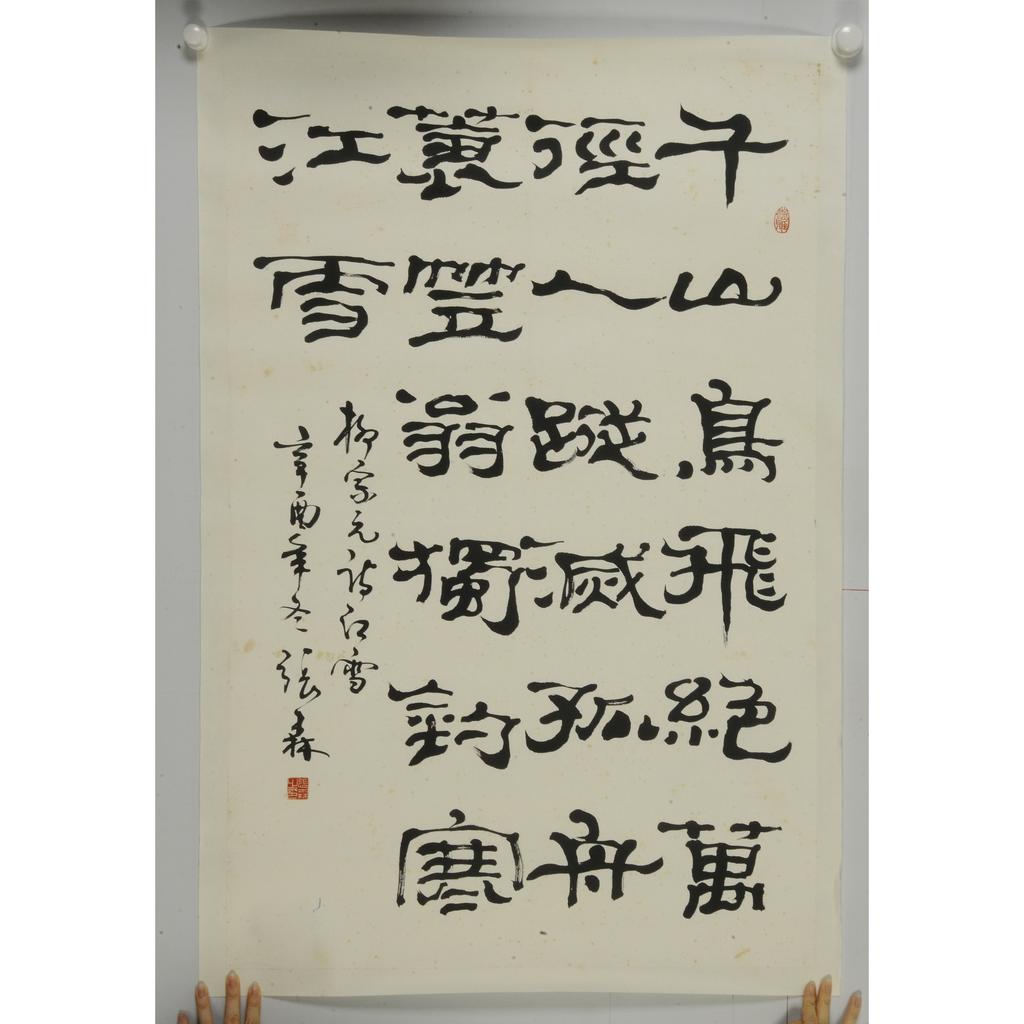 千山鳥飛絕萬
徑人蹤滅孤舟
蓑笠翁獨釣寒
江雪
柳宗元詩江雪
辛酉年冬張森